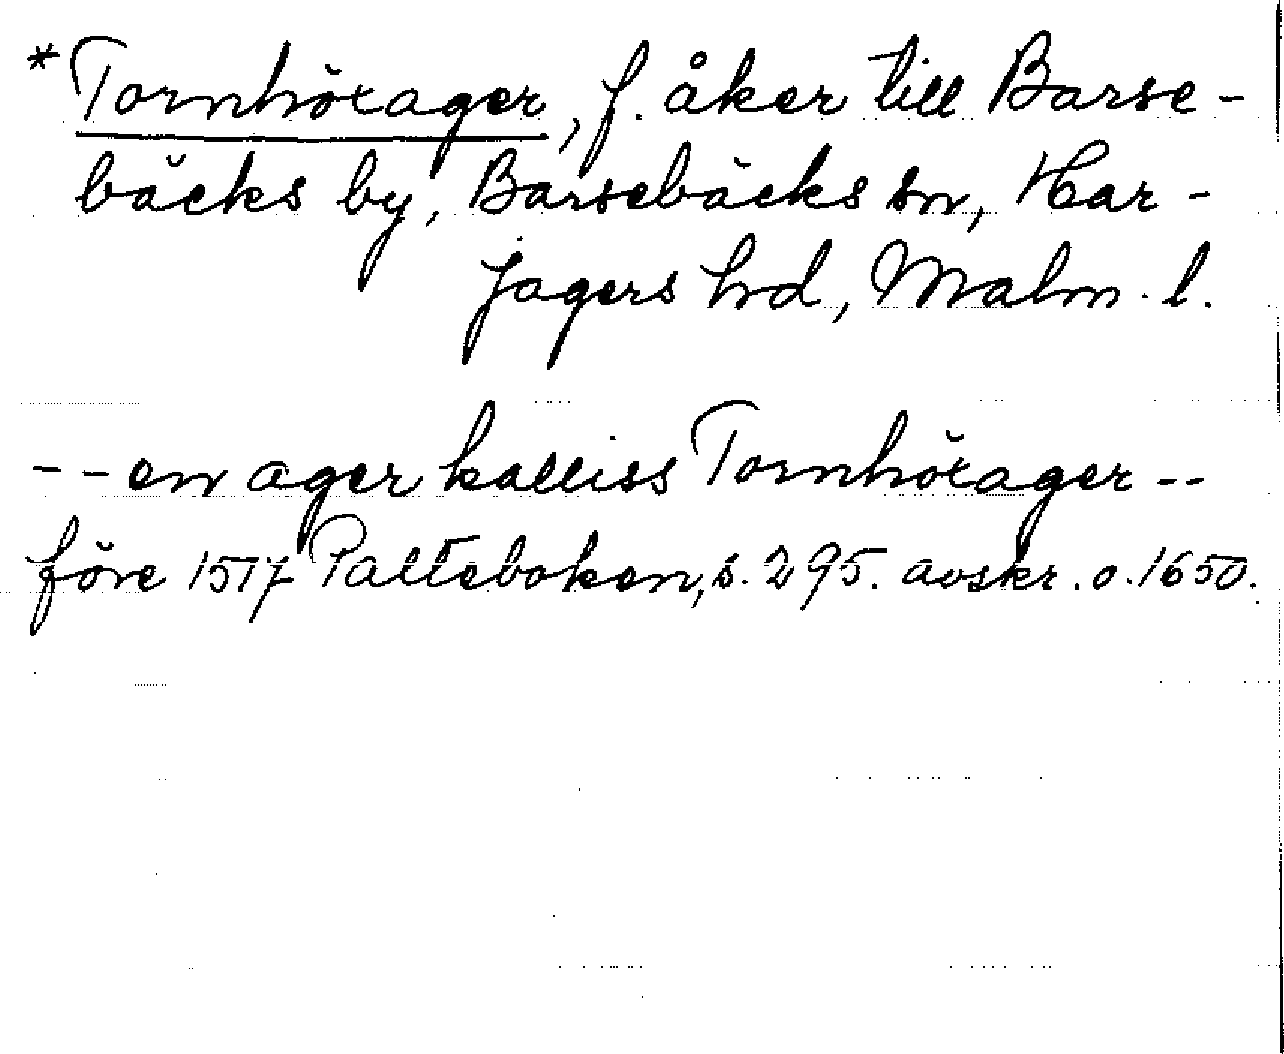 *Tornhöxager, f. åker till Barse-
bäcks by, Barsebäcks sn, Har-
jagers hrd, Malm. l.
-- en ager kalliss Tornhöxager --
före 1517 Palteboken, s. 295. avskr. o. 1650.